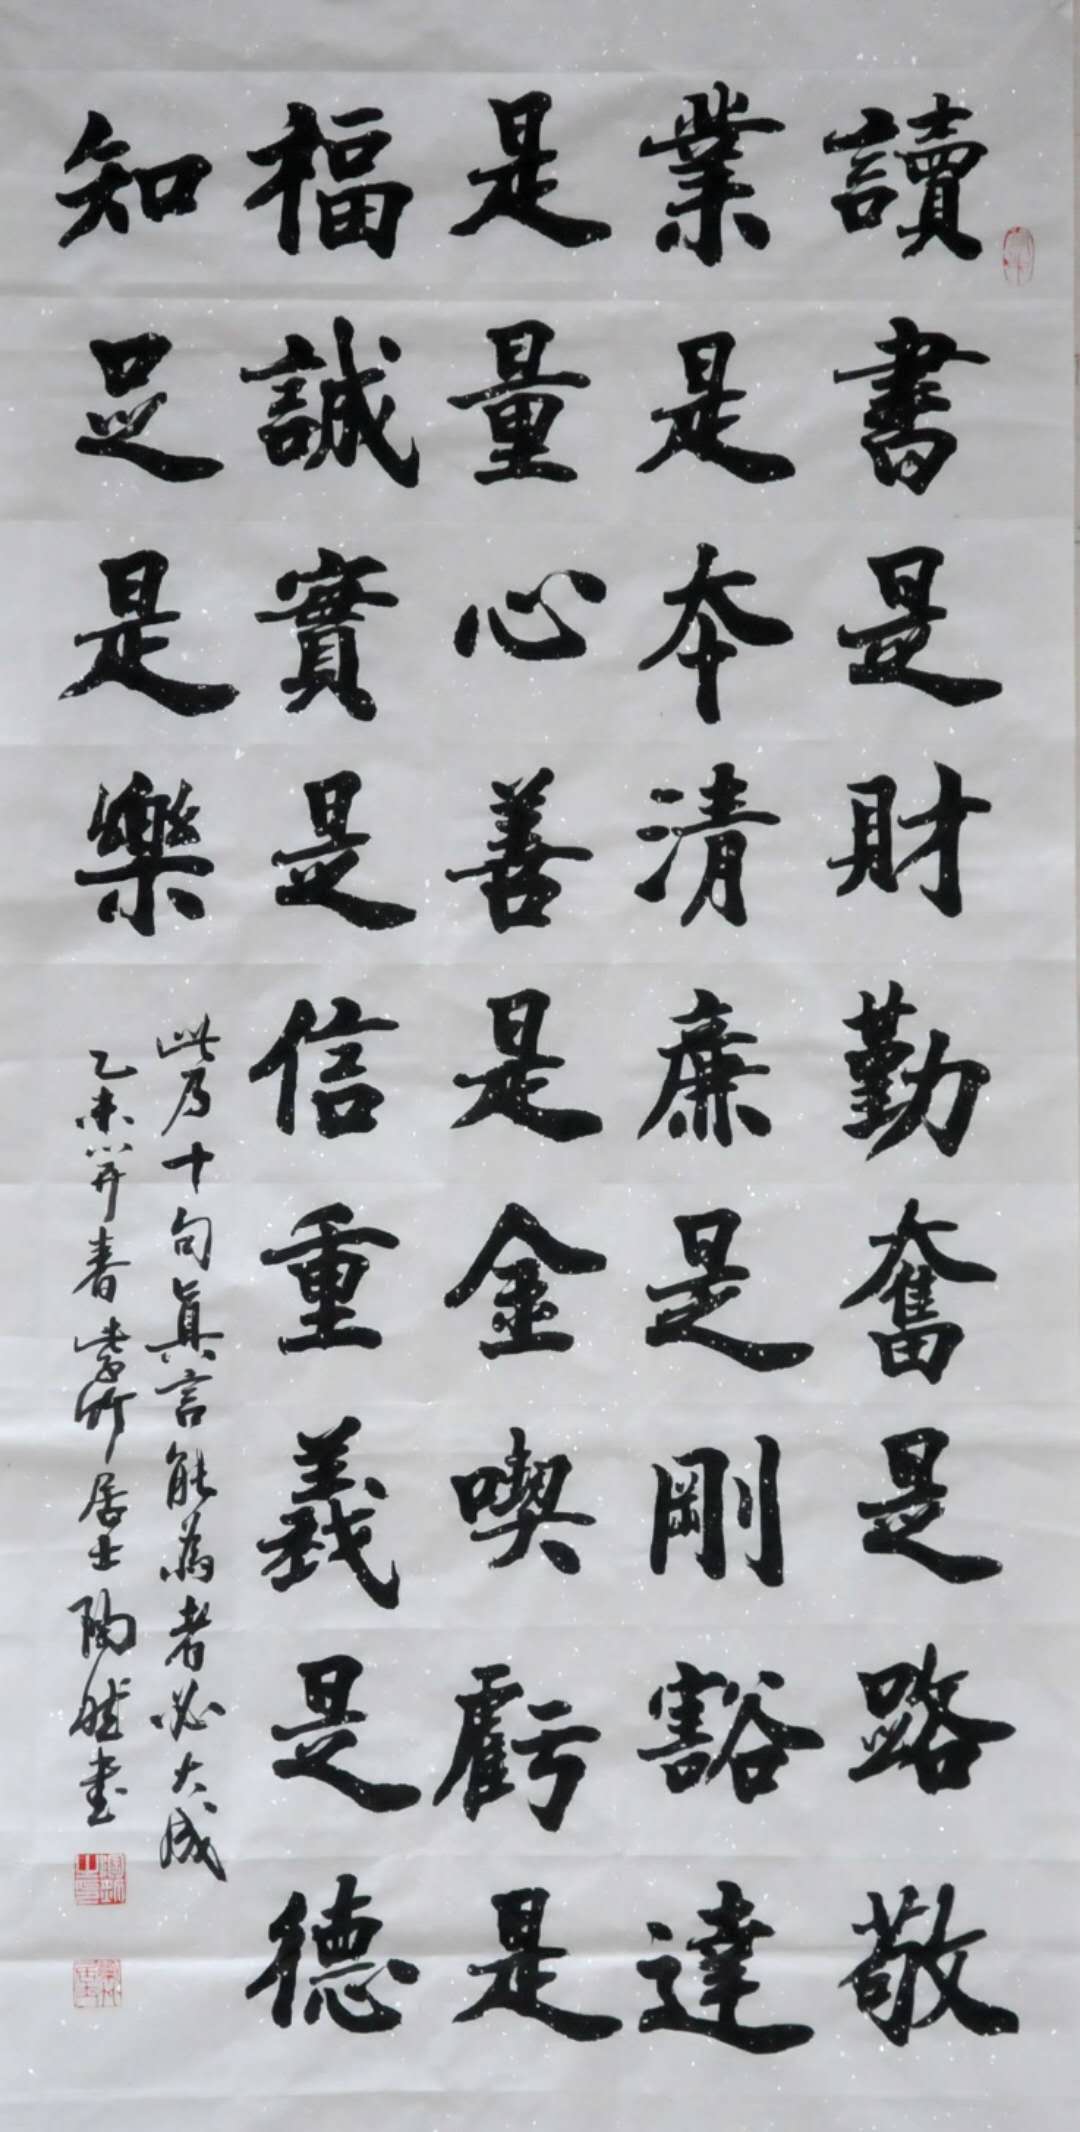 讀書是財勤奮是路敬
業是本清廉是剛豁達
是量心善是金喫虧是
福誠實是信重義是德
知足是樂
此乃十句真言能為者必大成
乙未開春紫竹居士陶然書